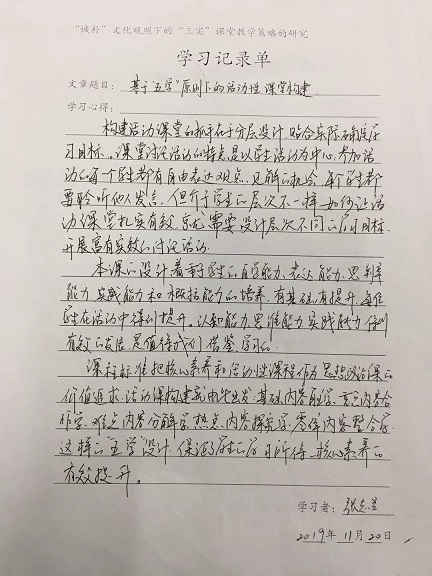 “诚朴”文化观照下的“三实”课堂教学策略的研究
学习记录单
文章题目：基于“五学”原则下的活动性课堂构建
学习心得：
构建活动课堂的抓手在于分层设计，贴合实际确定学
习目标。课堂讨论活动的特点是以学生活动为中心，参加活
动的每个学生都有自由表达观点、见解的机会，每个学生都
要聆听他人发言，但介于学生的层次不一样，如何让活
动课堂扎实有效，就需要设计层次不同的学习目标，
开展富有实效的讨论活动。
本课的设计着重于学生的自学能力、表达能力、思判
能力、实践能力和概括能力的培养，有基础，有提升，每位
学生在活动中得到提升。认知能力、思维能力、实践能力得到
有效的发展，是值得我们借鉴、学习的。
课程标准把核心素养和活动性课程作为思想政治课的
价值追求，活动课构建就由此生发：基础内容自学，重点内容合
作学，难点内容分解学，热点内容探究学，零碎内容整合学。
这样的“五学”设计，保证了学生的学习所得、核心素养的
有效提升。
学习者：张志兰
2019年11月20日